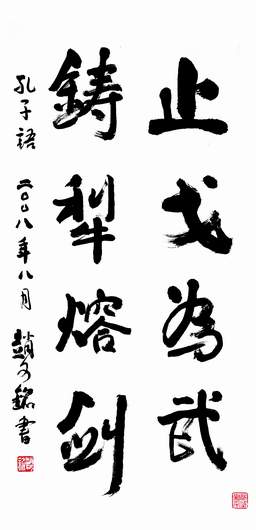 止戈為武
鑄犁熔剑
孔子語 二〇〇八年八月 趙 銘書